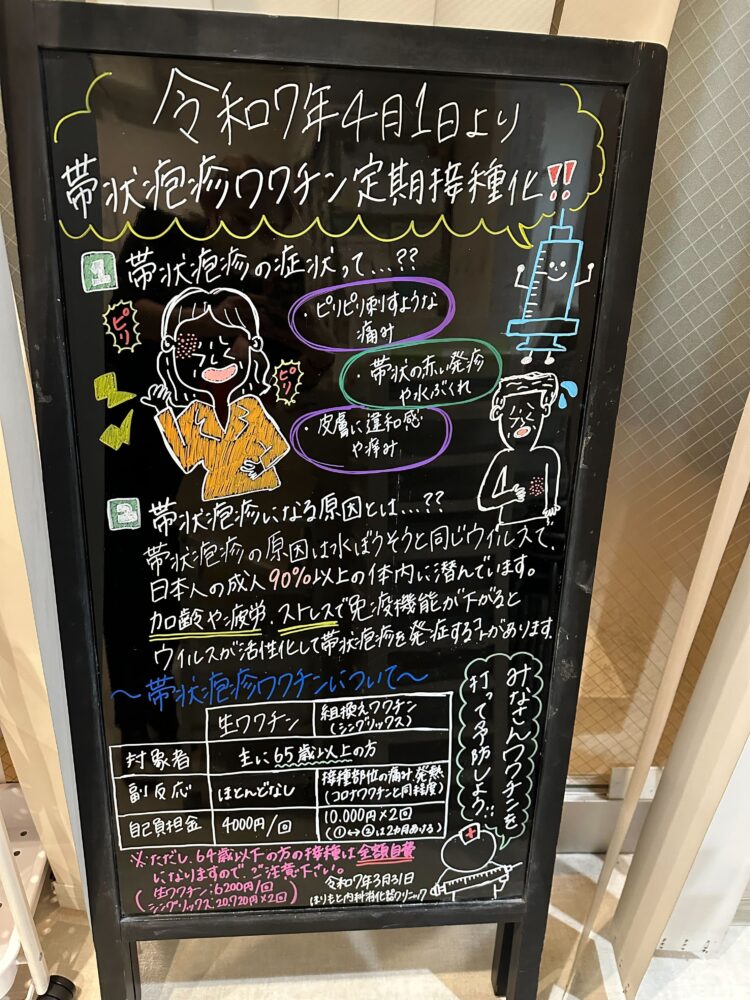 令和7年4月1日より
帯状疱疹ワクチン定期接種化!!
1 帯状疱疹の症状って…??
ピリ
ピリ
・ピリピリ刺すような
痛み
・帯状の赤い発疹
や水ぶくれ
・皮膚に違和感
や痒み
2 帯状疱疹になる原因とは…??
帯状疱疹の原因は水ぼうそうと同じウイルスで、
日本人の成人90%以上の体内に潜んでいます。
加齢や疲労、ストレスで免疫機能が下がると
ウイルスが活性化して帯状疱疹を発症する事があります。
～帯状疱疹ワクチンについて～
生ワクチン 組換えワクチン
(シングリックス)
対象者 主に65歳以上の方
副反応 ほとんどなし 接種部位の痛み、発熱
(コロナワクチンと同程度)
自己負担金 4000円/回 10.000円×2回
(①↔②は2カ月あける)
みなさんワクチンを
打って予防しよう!!
※ただし、64歳以下の方の接種は全額自費
になりますので、ご注意下さい。
(生ワクチン:6200円/回
シングリックス:20,720円×2回)
令和7年3月31日
ほりもと内科消化器クリニック